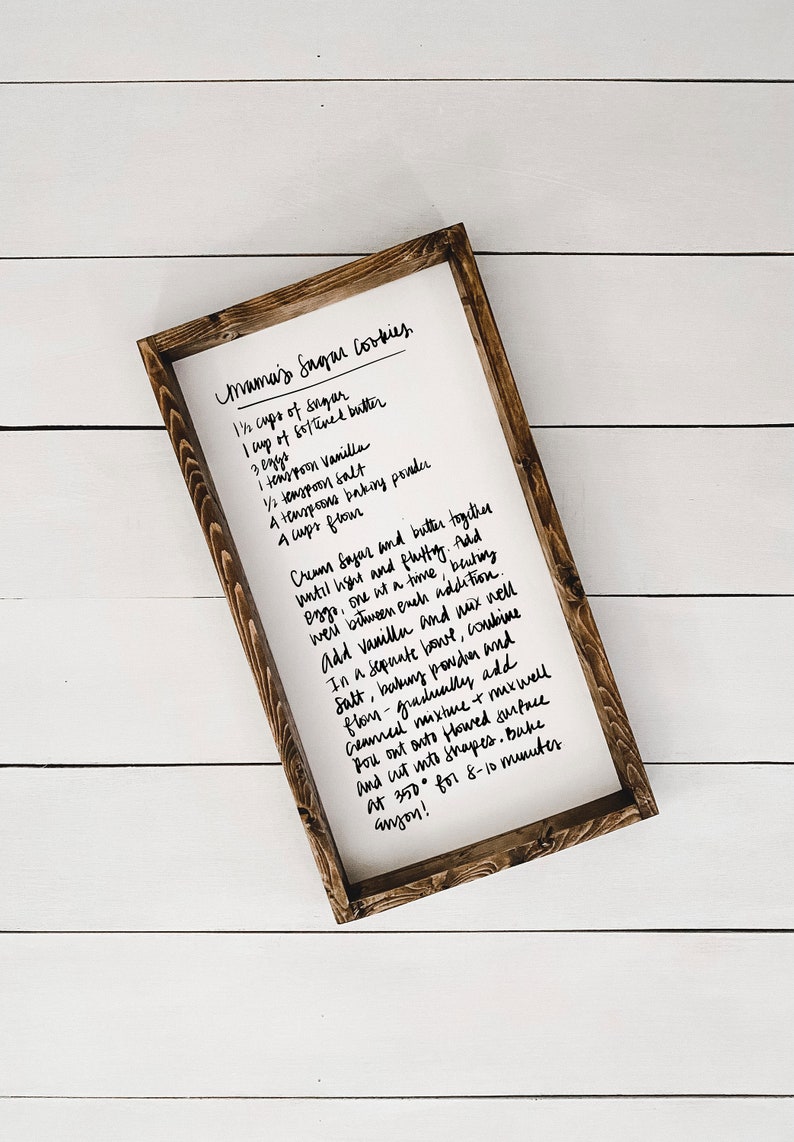 Mama's Sugar Cookies
1 1/2 cups of sugar
1 cup of softened butter
3 eggs
1 teaspoon vanilla
1/2 teaspoon salt
4 teaspoons baking powder
4 cups flour
Cream sugar and butter together
until light and fluffy. Add
eggs, one at a time, beating
well between each addition.
Add vanilla and mix well
In a separate bowl, combine
salt, baking powder and
flour - gradually add
creamed mixture + mix well
Roll out onto flowed surface
and cut into shapes. Bake
at 350° for 8-10 minutes
enjoy!